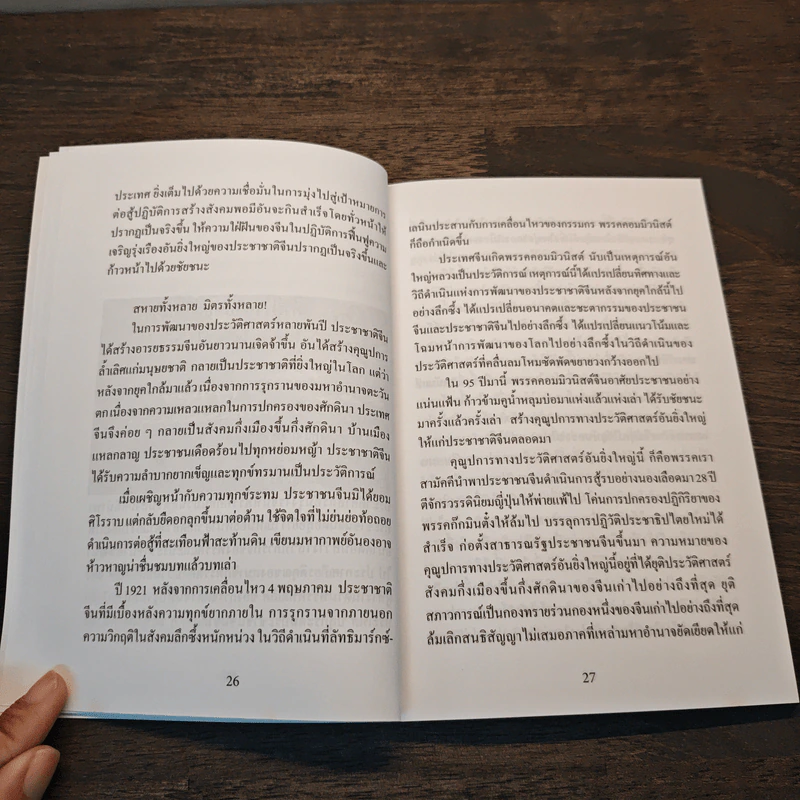 ประเทศ ยิ่งเต็มไปด้วยความเชื่อมั่นในการมุ่งไปสู่เป้าหมายการ
ต่อสู้ปฏิบัติการสร้างสังคมพอมีอันจะกินสำเร็จโดยทั่วหน้าให้
ปรากฏเป็นจริงขึ้น ให้ความใฝ่ฝันของจีนในปฏิบัติการฟื้นฟูความ
เจริญรุ่งเรืองอันยิ่งใหญ่ของประชาชาติจีนปรากฏเป็นจริงขึ้นและ
ก้าวหน้าไปด้วยชัยชนะ
สหายทั้งหลาย มิตรทั้งหลาย!
ในการพัฒนาของประวัติศาสตร์หลายพันปี ประชาชาติจีน
ได้สร้างอารยธรรมจีนอันยาวนานเจิดจ้าขึ้น อันได้สร้างคุณูปการ
ล้ำเลิศแก่มนุษยชาติ กลายเป็นประชาชาติที่ยิ่งใหญ่ในโลก แต่ว่า
หลังจากยุคใกล้มาแล้ว เนื่องจากการรุกรานของมหาอำนาจตะวัน
ตก เนื่องจากความเหลวแหลกในการปกครองของศักดินา ประเทศ
จีนจึงค่อย ๆ กลายเป็นสังคมกึ่งเมืองขึ้นกึ่งศักดินา บ้านเมือง
แหลกลาญ ประชาชนเดือดร้อนไปทุกหย่อมหญ้า ประชาชาติจีน
ได้รับความลำบากยากเข็ญและทุกข์ทรมานเป็นประวัติการณ์
เมื่อเผชิญหน้ากับความทุกข์ระทม ประชาชนจีนมิได้ยอม
ศิโรราบ แต่กลับยืดอกลุกขึ้นมาต่อต้าน ใช้จิตใจที่ไม่ย่นย่อท้อถอย
ดำเนินการต่อสู้ที่สะเทือนฟ้าสะท้านดิน เขียนมหากาพย์อันองอาจ
ห้าวหาญน่าชื่นชมบทแล้วบทเล่า
ปี 1921 หลังจากการเคลื่อนไหว 4 พฤษภาคม ประชาชาติ
จีนที่มีเบื้องหลังความทุกข์ยากภายใน การรุกรานจากภายนอก
ความวิกฤติในสังคมลึกซึ้งหนักหน่วง ในวิถีดำเนินที่ลัทธิมาร์กซ์-
26
เลนินประสานกับการเคลื่อนไหวของกรรมกร พรรคคอมมิวนิสต์
ก็ถือกำเนิดขึ้น
ประเทศจีนเกิดพรรคคอมมิวนิสต์ นับเป็นเหตุการณ์อัน
ใหญ่หลวงเป็นประวัติการณ์ เหตุการณ์นี้ได้แปรเปลี่ยนทิศทางและ
วิถีดำเนินแห่งการพัฒนาของประชาชาติจีนหลังจากยุคใกล้นี้ไป
อย่างลึกซึ้ง ได้แปรเปลี่ยนอนาคตและชะตากรรมของประชาชน
จีนและประชาชาติจีนไปอย่างลึกซึ้ง ได้แปรเปลี่ยนแนวโน้มและ
โฉมหน้าการพัฒนาของโลกไปอย่างลึกซึ้งในวิถีดำเนินของ
ประวัติศาสตร์ที่คลื่นลมโหมซัดพัดขยายวงกว้างออกไป
ใน 95 ปีมานี้ พรรคคอมมิวนิสต์จีนอาศัยประชาชนอย่าง
แน่นแฟ้น ก้าวข้ามคูน้ำหลุมบ่อมาแห่งแล้วแห่งเล่า ได้รับชัยชนะ
มาครั้งแล้วครั้งเล่า สร้างคุณูปการทางประวัติศาสตร์อันยิ่งใหญ่
ให้แก่ประชาชาติจีนตลอดมา
คุณูปการทางประวัติศาสตร์อันยิ่งใหญ่นี้ ก็คือพรรคเรา
สามัคคีนำพาประชาชนจีนดำเนินการสู้รบอย่างนองเลือดมา 28 ปี
ตีจักรวรรดินิยมญี่ปุ่นให้พ่ายแพ้ไป โค่นการปกครองปฏิกิริยาของ
พรรคก๊กมินตั๋งให้ล้มไป บรรลุการปฏิวัติประชาธิปไตยใหม่ได้
สำเร็จ ก่อตั้งสาธารณรัฐประชาชนจีนขึ้นมา ความหมายของ
คุณูปการทางประวัติศาสตร์อันยิ่งใหญ่นี้อยู่ที่ได้ยุติประวัติศาสตร์
สังคมกึ่งเมืองขึ้นกึ่งศักดินาของจีนเก่าไปอย่างถึงที่สุด ยุติ
สภาวการณ์เป็นกองทรายร่วนกองหนึ่งของจีนเก่าไปอย่างถึงที่สุด
ล้มเลิกสนธิสัญญาไม่เสมอภาคที่เหล่ามหาอำนาจยัดเยียดให้แก่
27